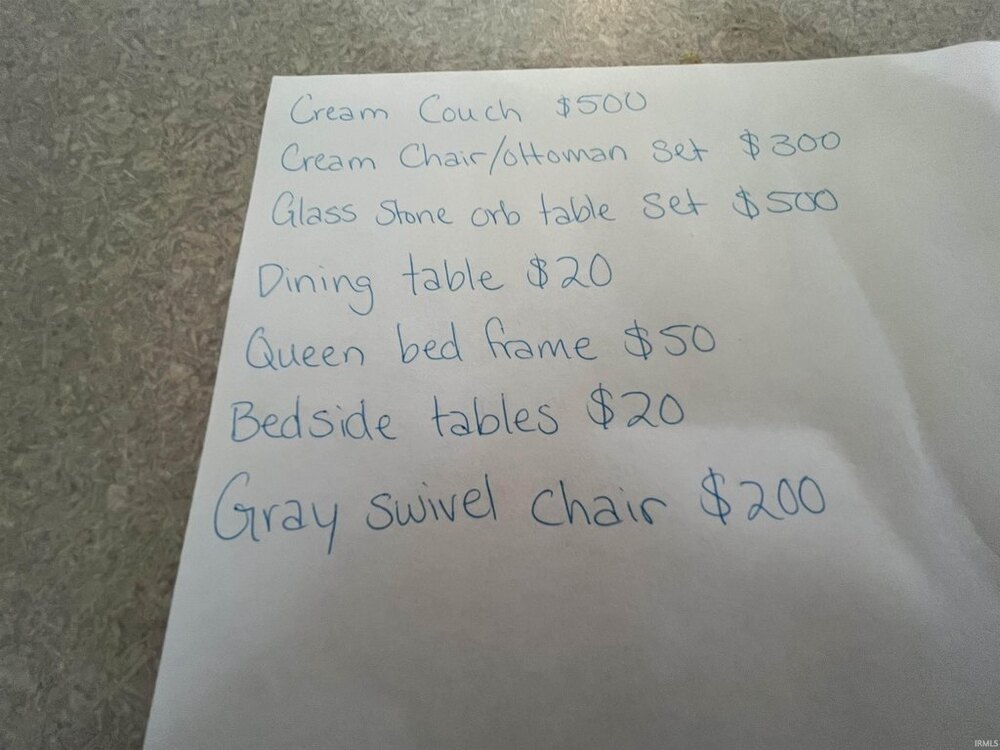 Cream Couch $500
Cream Chair/ottoman set $300
Glass Stone orb table set $500
Dining table $20
Queen bed frame $50
Bedside tables $20
Gray swivel chair $200
IRMLS